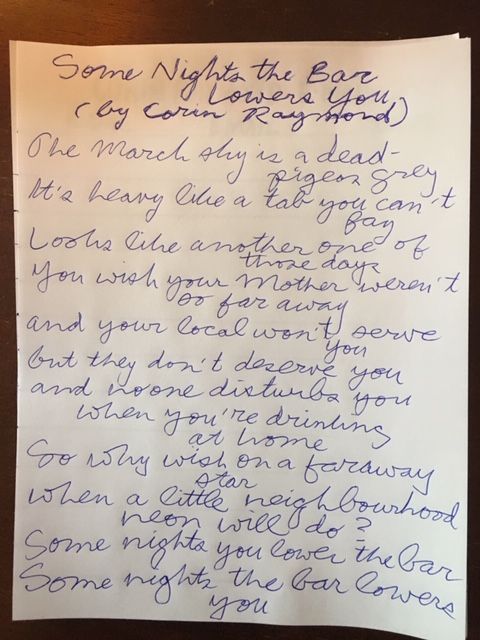 Some Nights the Bar
Lowers You
(by Corin Raymond)
The March sky is a dead-
pigeon grey
It's heavy like a tab you can't
pay
Looks like another one of
those days
You wish your Mother weren't
so far away
and your local won't serve
you
but they don't deserve you
and no one disturbs you
when you're drinking
at home
So why wish on a faraway
star
when a little neighbourhood
neon will do?
Some nights you lower the bar
Some nights the bar lowers
you